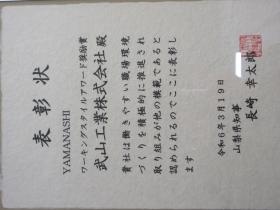 表彰状
YAMANASHI
ワーキングスタイルアワード奨励賞
武山工業株式会社殿
貴社は働きやすい職場環境
づくりを積極的に推進され
取り組みが他の模範であると
認められるのでここに表彰し
ます
令和6年3月19日
山梨県知事
長崎幸太郎